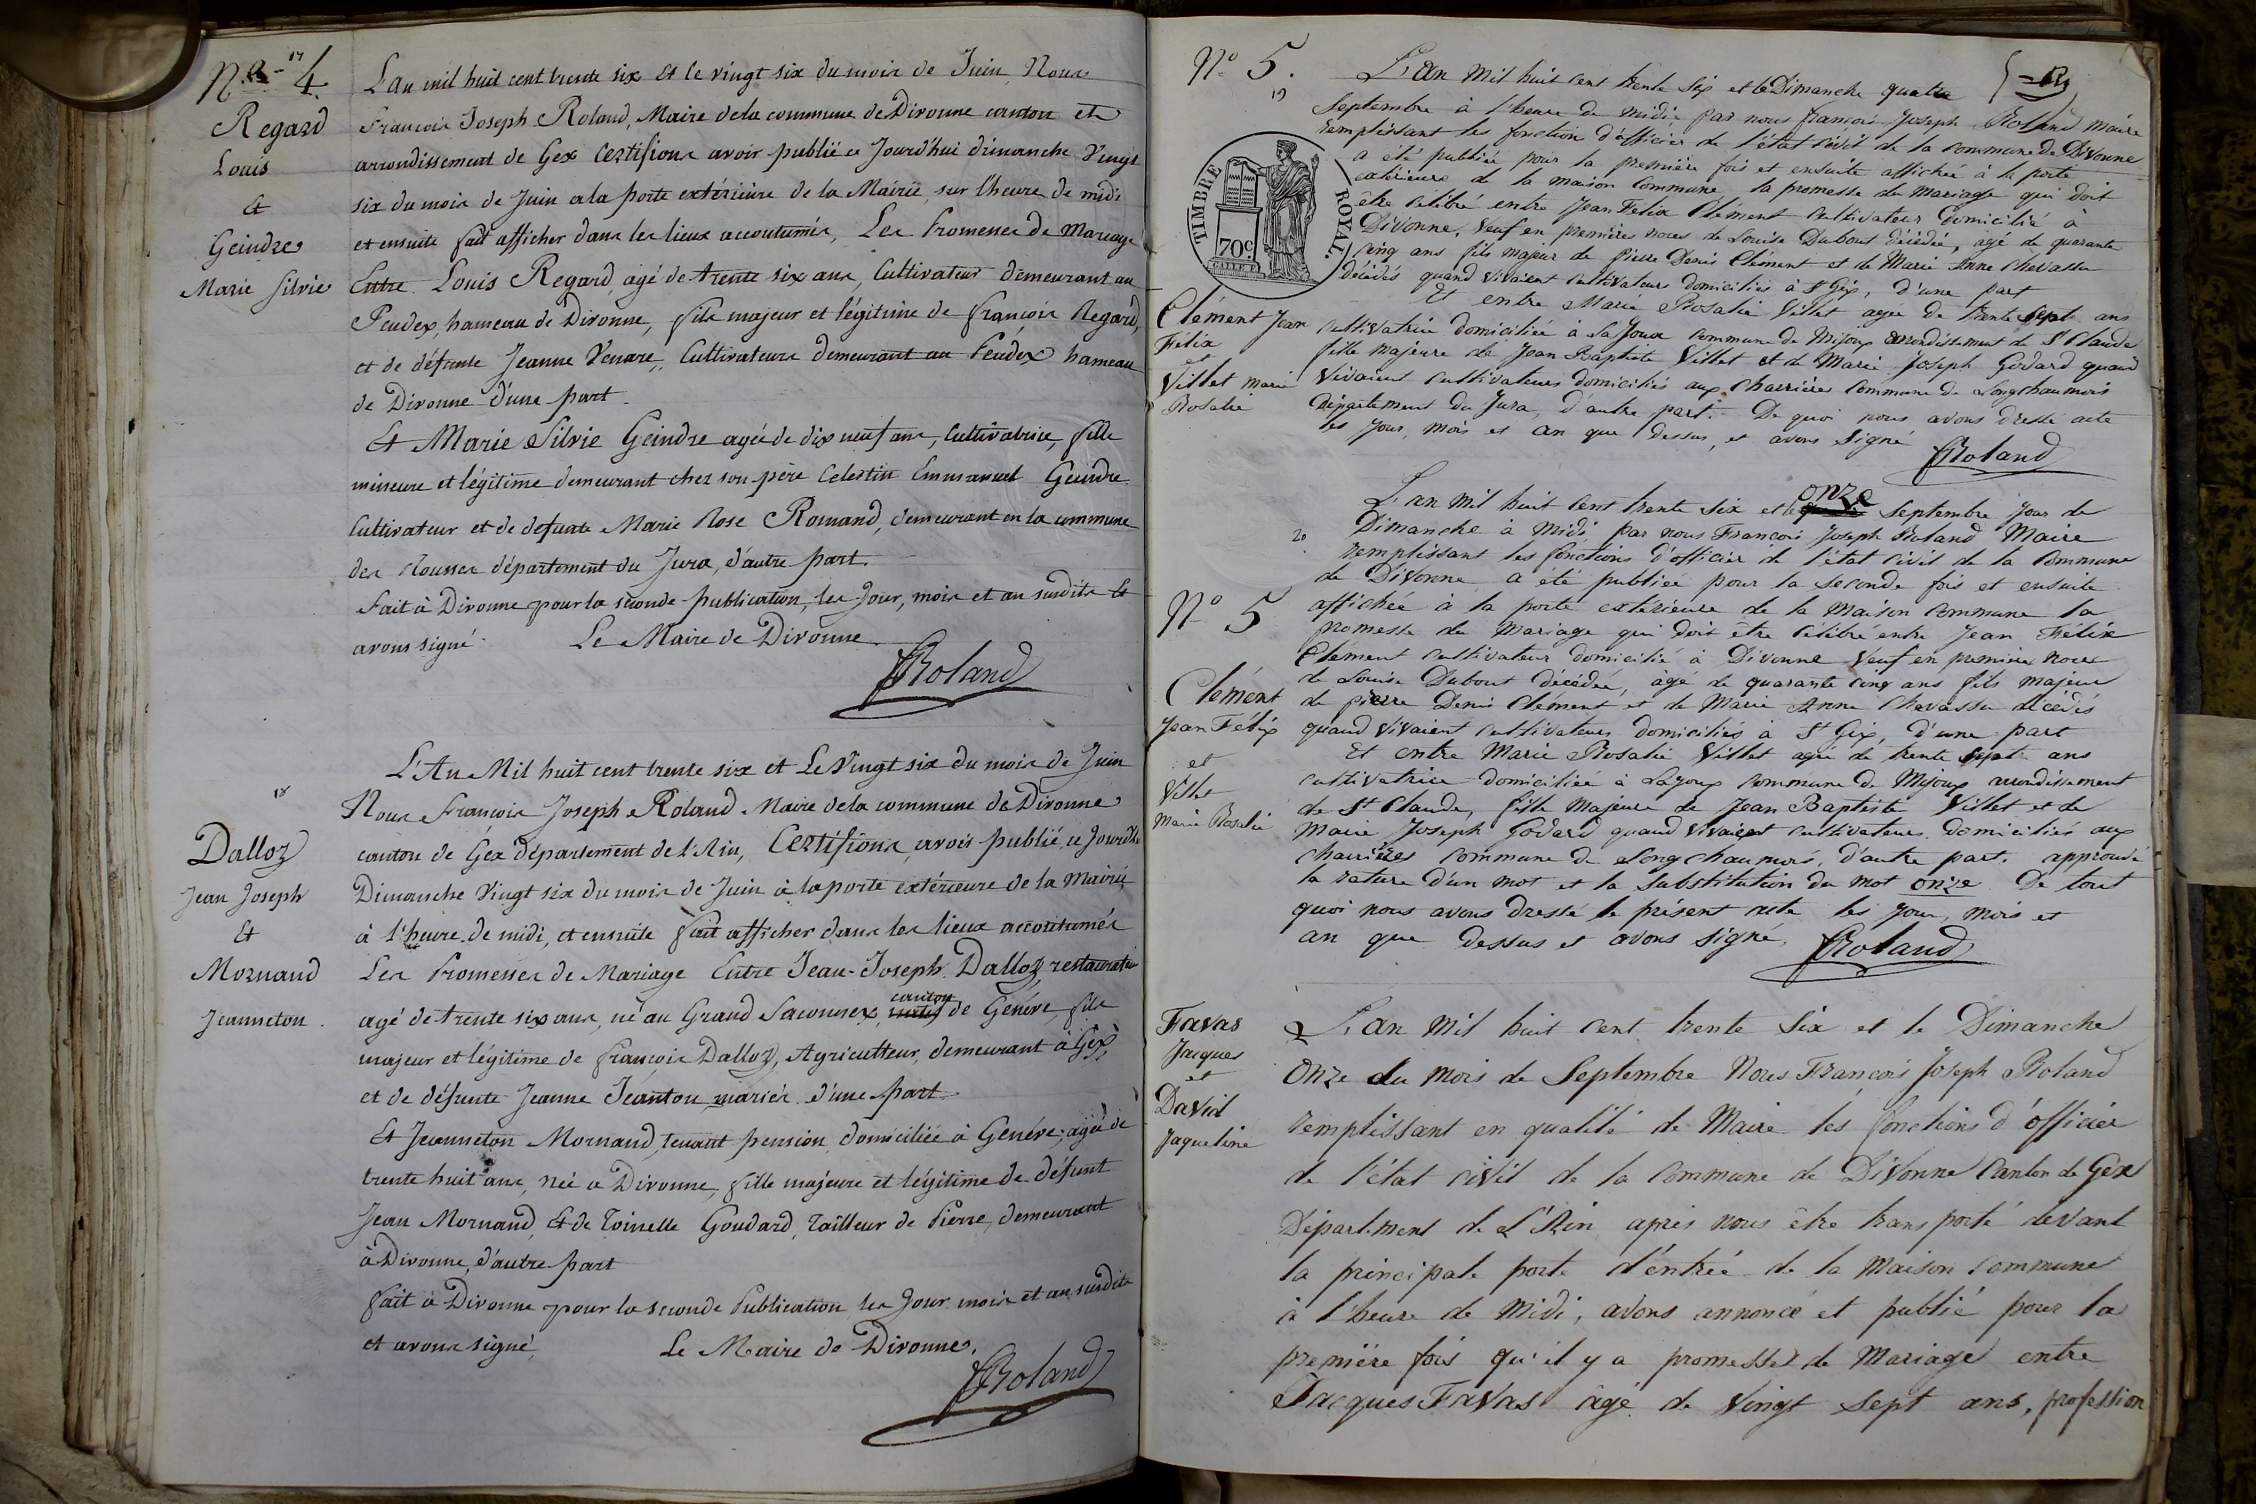 N° 4
17
Regard
Louis
et
Geindre
Marie Silvie
L'an mil huit cent trente six et le vingt six du mois de Juin, Nous
François Joseph Roland, Maire de la commune de Divonne canton et
arrondissement de Gex Certifions avoir publié ce Jourd'hui dimanche Vingt
six du mois de Juin a la porte extérieure de la Mairie, sur l'heure de midi
et ensuite fait afficher dans les lieux accoutumés, Les Promesses de Mariage
Entre Louis Regard, agé de trente six ans, Cultivateur demeurant au
Feudex hameau de Divonne, fils majeur et légitime de François Regard,
et de défunte Jeanne Venare, Cultivateurs demeurant au Feudex hameau
de Divonne d'une part.
Et Marie Silvie Geindre agée de dix neuf ans, Cultivatrice, fille
mineure et légitime demeurant chez son père Celestin Emmanuel Geindre
Cultivateur et de defunte Marie Rose Romand, demeurant en la commune
des Rousses département du Jura, d'autre part.
Fait à Divonne pour la seconde publication, les Jour, mois et an susdits et
avons signé. Le Maire de Divonne
FRoland
18
Dalloz
Jean Joseph
Et
Mornand
Jeanneton
L'An Mil huit cent trente six et Le Vingt six du mois de Juin
Nous François Joseph Roland Maire de la commune de Divonne
canton de Géx département de l'Ain, Certifions avoir publié, ce Jourd'h
Dimanche Vingt six du mois de Juin à la porte extérieure de la Mairie,
à l'heure de midi, et ensuite fait afficher dans les lieux accoutumés
Les Promesses de Mariage Entre Jean-Joseph Dalloz, restaurateur
canton
agé de trente six ans, né au Grand Saconnex, de Genéve, fils
majeur et légitime de François Dalloz, Agriculteur, demeurant à Géx,
et de défunte Jeanne Jeanton mariés d'une part.
Et Jeanneton Mornand, tenant pension, domiciliée à Genéve, agée de
trente huit ans, née a Divonne, fille majeure et légitime de défunt
Jean Mornand, et de Toinette Goudard, Tailleur de Pierre, demeurant
à Divonne, d'autre part
fait à Divonne pour la seconde Publication les Jour mois et an susdits
et avons signé, Le Maire de Divonne.
FRoland
N° 5.
19
TIMBRE ROYAL.
70c.
Clément Jean
Felix
et
Villet Marie
Rosalie
L'an mil huit cent trente six et le Dimanche quatre
Septembre à l'heure de midi par nous françois Joseph Roland maire
remplissant les fonction d'officier de l'état civil de la commune de Divonne
a été publiée pour la premiëre fois et ensuite affichée à la porte
extérieure de la maison commune, la promesse de mariage qui doit
être célébré entre Jean Felix Clément cultivateur domicilié à
Divonne, veuf en premières noces de Louise Dubout décédée, agé de quarante
cinq ans fils majeur de Pierre Denis Clément et de Marie Anne Chevassu
décédés quand vivaient cultivateurs domiciliés à St Gix, d'une part
Et entre Marie Rosalie Villet agée de trente sept ans
cultivatrice domiciliée à Lajoux commune de Mijoux arrondissement de St Claude
fille majeure de Jean Baptiste Villet et de Marie Joseph Godard quand
vivaient cultivateurs domiciliés aux charrières commune de Longchaumois
département du Jura, d'autre part. De quoi nous avons dressé acte
les jour, mois et an que dessus, et avons signé
FRoland
20
N° 5
Clément
Jean Félix
et
Villet
Marie Rosalie
onze
L'an mil huit cent trente six et le Septembre jour de
Dimanche à midi par nous François Joseph Roland Maire
remplissant les fonctions d'officier de l'état civil de la commune
de Divonne a été publiée pour la seconde fois et ensuite
affichée à la porte extérieure de la maison commune la
promesse de mariage qui doit être célébré entre Jean Félix
Clément cultivateur domicilié à Divonne veuf en premières noces
de Louise Dubout décédée, agé de quarante cinq ans fils majeur
de pierre Denis Clément et de Marie Anne Chevassu décédés
quand vivaient cultivateurs domiciliés à St Gix, d'une part
Et entre Marie Rosalie Villet agée de trente sept ans
cultivatrice domiciliée à Lajoux commune de Mijoux arrondissement
de St Claude, fille majeure de Jean Baptiste Villet et de
Marie Joseph Godard quand vivaient cultivateurs domiciliés aux
charrières commune de Longchaumois, d'autre part. approuvé
la rature d'un mot et la substitution du mot onze De tout
quoi nous avons dressé le présent acte les jour, mois et
an que dessus et avons signé. FRoland
Favas
Jacques
et
David
Jaqueline
L'an mil huit cent trente six et le Dimanche
onze du mois de Septembre Nous François Joseph Roland
remplissant en qualité de Maire les fonctions d'officier
de l'état civil de la commune de Divonne Canton de Géx
Département de L'Ain après nous être transporté devant
la principale porte d'éntrée de la maison commune
à l'heure de midi, avons annoncé et publié pour la
premiëre fois qu'il y a promesses de mariage entre
Jacques Favas âgé de vingt sept ans, profession